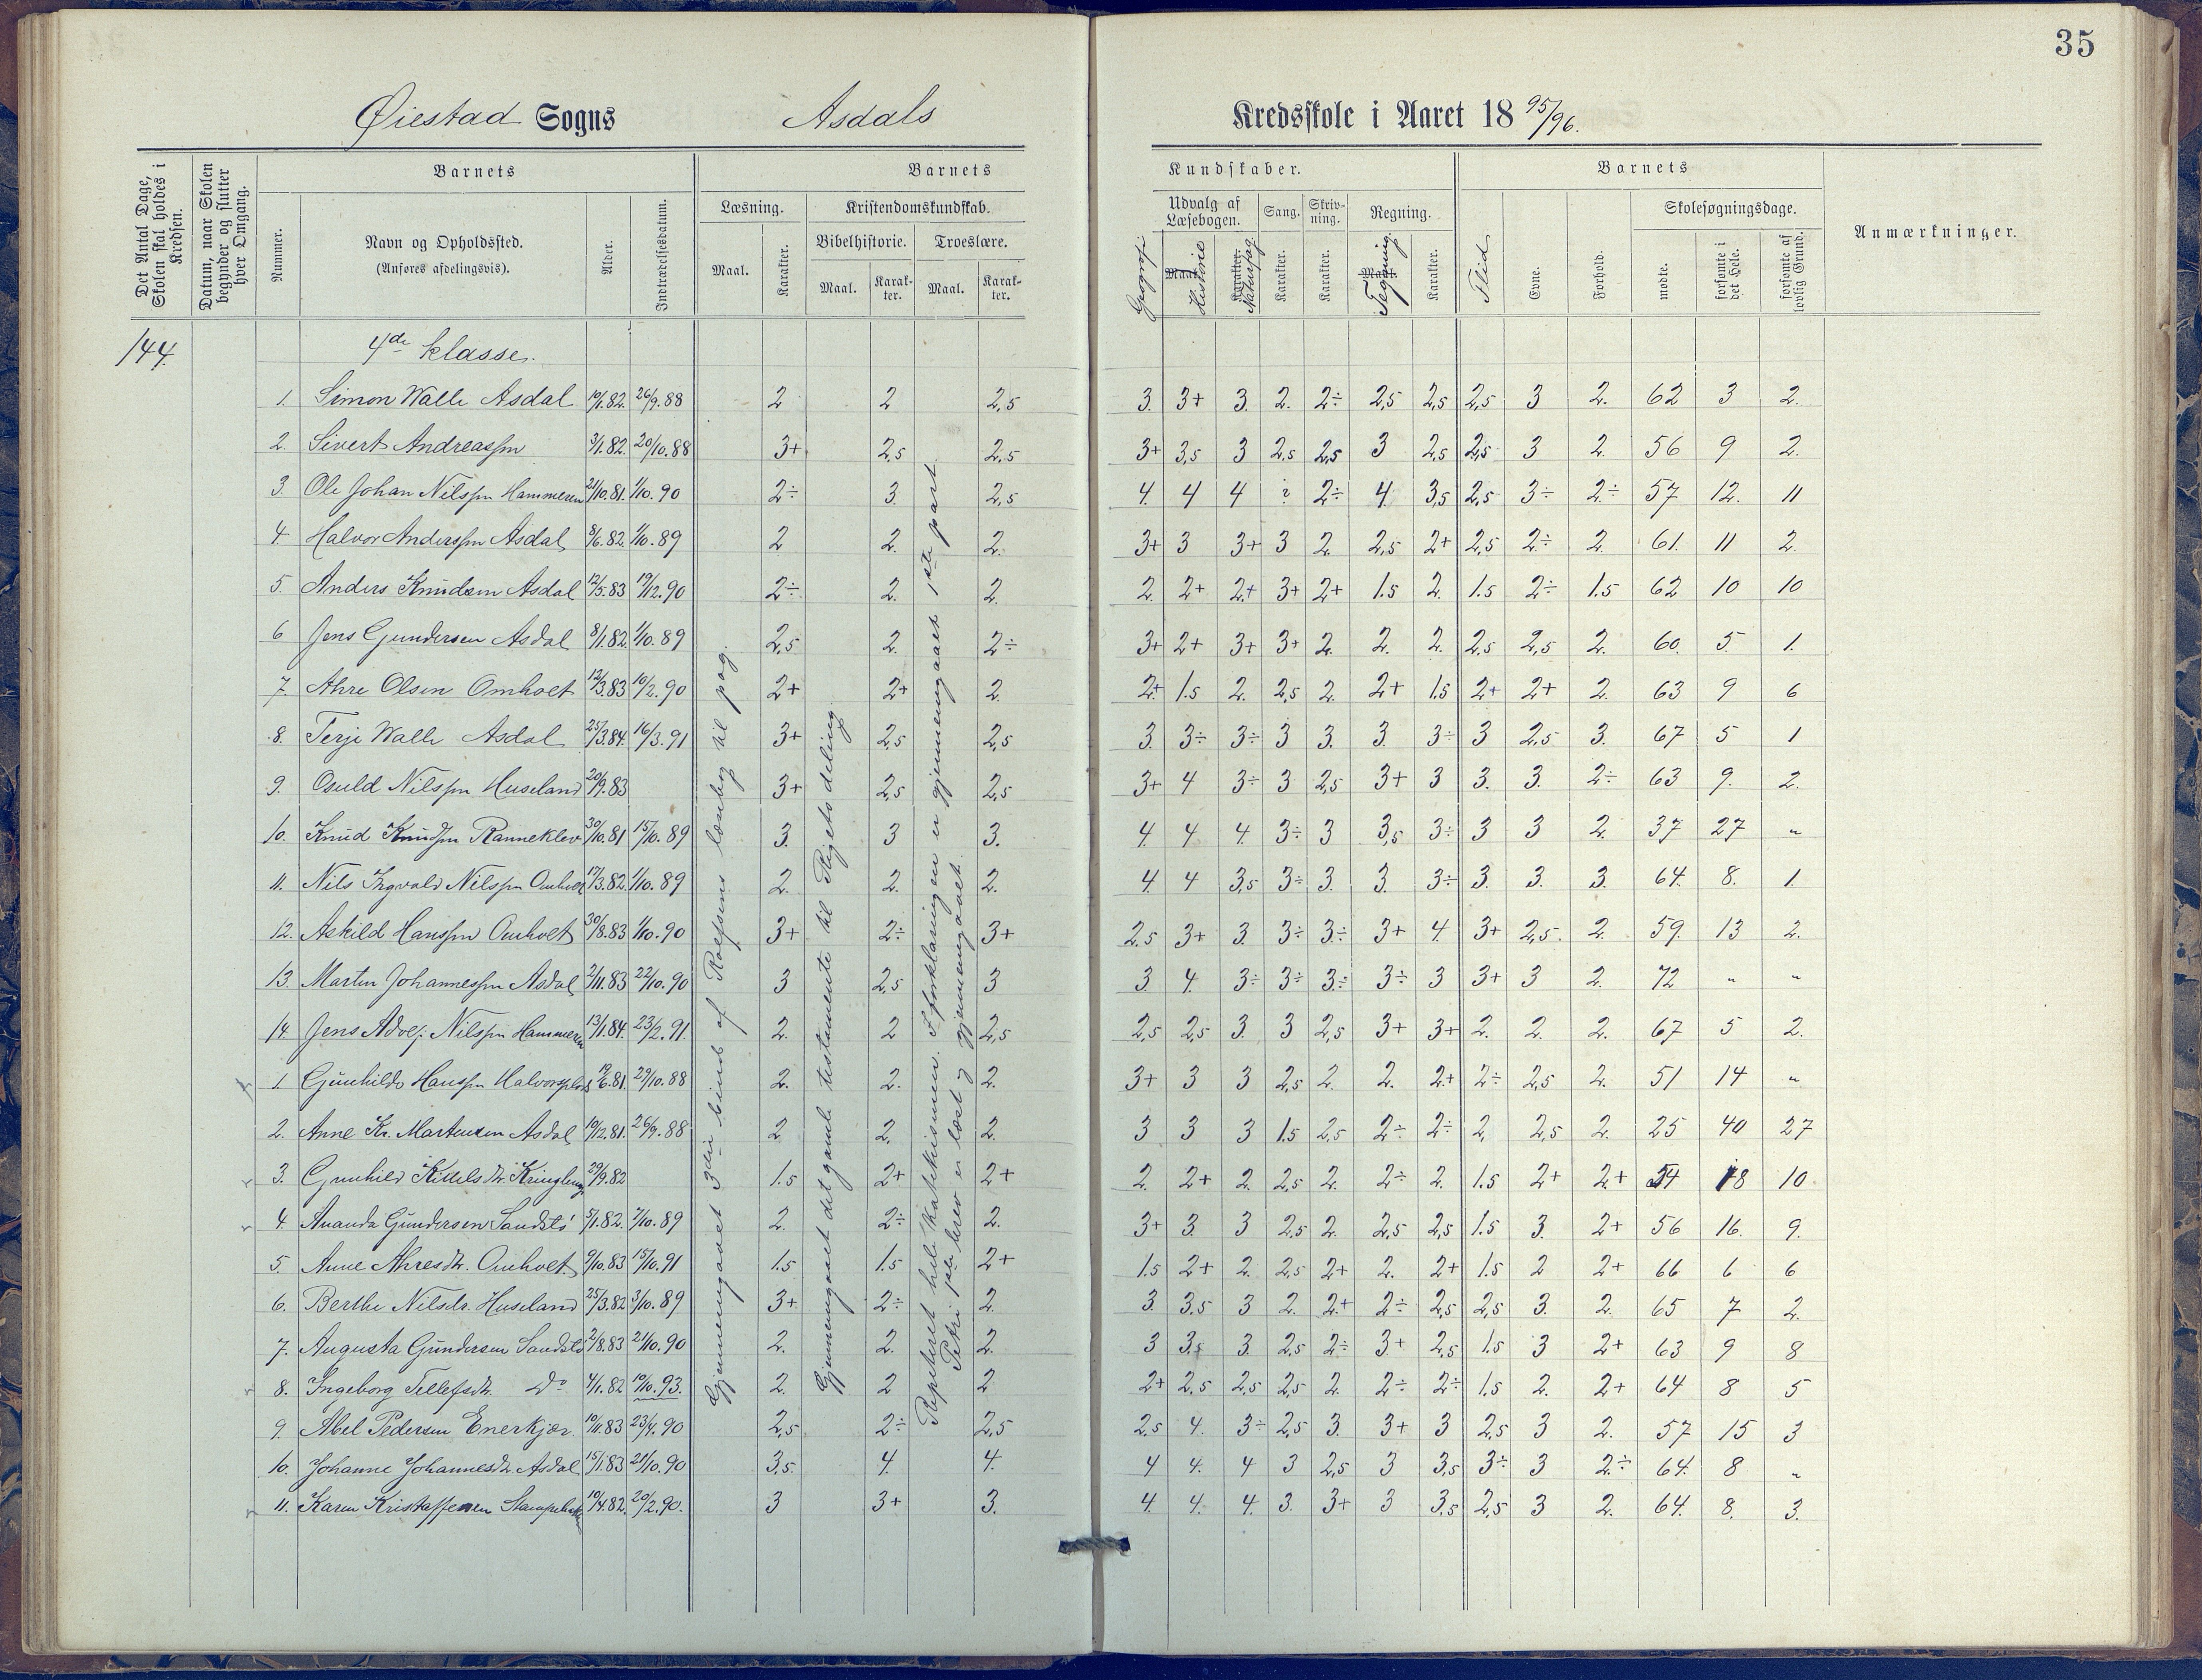 35
Øiestad Sogns Asdals Kredsskole i Aaret 18 95/96.
Det Antal Dage, Skolen skal holdes i Kredsen.
Datum, naar Skolen begynder og slutter hver Omgang.
Barnets
Nummer.
Navn og Opholdssted.
(Anføres afdelingsvis).
Alder.
Indtrædelsesdatum.
Barnets Kundskaber.
Læsning.
Maal. Karakter.
Kristendomskundskab.
Bibelhistorie. Troeslære.
Maal. Karakter. Maal. Karakter.
Udvalg af Læsebogen. Sang. Skrivning. Regning.
Geografi Maal. Historie Karakter. Naturfag Karakter. Karakter. Maal. Tegning Karakter.
Barnets
Flid Evne. Forhold.
Skolesøgningsdage.
mødte. forsømte i det Hele. forsømte af lovlig Grund.
Anmærkninger.
144. 4de klasse.
1. Simon Walle Asdal 19/1.82. 26/9.88 2 2 2,5 3. 3+ 3. 2. 2÷ 2,5 2,5 2,5 3 2. 62 3 2.
2. Sivert Andreassen 3/1.82. 20/10.88 3+ 2,5 2,5 3+ 3,5 3 2,5 2,5 3 2,5 2,5 3 2. 56 9 2.
3. Ole Johan Nilssen Hammeren 21/10.81. 1/10.90 2÷ 3. 2,5 4. 4 4 ? 2÷ 4. 3,5 2,5 3÷ 2÷ 57 12. 11
4. Halvor Anderssen Asdal 8/6.82. 1/10.89 2 2. 2. 3+ 3 3+ 3 2. 2,5 2+ 2,5 2÷ 2. 61. 11 2.
5. Anders Knudsen Asdal 12/5.83 19/12.90 2÷ 2. 2. 2. 2+ 2+ 3+ 2+ 1.5 2. 1.5 2÷ 1.5 62 10 10
6 Jens Gundersen Asdal 8/1.82. 1/10.89 2,5 2. 2÷ 3+ 2+ 3+ 3+ 2. 2. 2. 2.5 2,5 2. 60. 5. 1.
7. Ahre Olsen Omholt 12/3.83 10/2.90 2+ 2+ 2. 2+ 1.5 2. 2,5 2. 2+ 1.5 2+ 2+ 2. 63 9 6
8. Terje Walle Asdal 25/3.84. 16/3.91 3+ 2,5 2,5 3. 3÷ 3÷ 3 3. 3. 3÷ 3 2,5 3. 67 5 1
9. Osuld Nilssen Huseland 20/9.83 3+ 2,5 2,5 3+ 4 3÷ 3 2,5 3+ 3 3. 3. 2÷ 63 9. 2.
10. Knud Knudsen Ranneklev 30/10.81 15/10.89 3. 3 3. 4. 4 4. 3÷ 3 3,5 3÷ 3 3 2. 37 27 "
11. Nils Ingvald Nilssen Omholt 17/3.82. 1/10.89 2. 2. 2. 4. 4 3,5 3÷ 3. 3. 3÷ 3. 3. 3. 64. 8. 1.
12. Askild Hanssen Omholt 30/8.83 1/10.90 3+ 2÷ 3+ 2.5 3+ 3. 3÷ 3÷ 3+ 4. 3+ 2,5. 2. 59. 13 2.
13. Martin Johannessen Asdal 2/11.83 22/10.90 3 2,5 3 3 4. 3÷ 3÷ 3÷ 3÷ 3 3+ 3 2. 72 " "
14. Jens Adolf Nilssen Hammeren 13/1.84. 23/2.91. 2. 2 2,5 2,5 2,5 3 3 2,5 3+ 3+ 2. 2. 2. 67 5 2.
1. Gunhilds Hanssen Halvorsplads 19/6.81. 29/10.88 2. 2. 2. 3+ 3 3 2,5 2. 2. 2+ 2÷ 2,5 2. 51 14 "
2. Anne Kr. Martensen Asdal 19/2.81. 26/9.88 2 2. 2. 3 3 3 1.5 2,5 2÷ 2÷ 2, 2,5 2. 25 40 27
3. Gunhild Kittelsdtr. 29/9.82 1.5 2+ 2+ 2. 2+ 2. 2,5 2. 2÷ 2. 1.5 2+ 2+ 54 18 10
4. Ananda Gundersen Sandstø 5/1.82. 7/10.89 2. 2÷ 2. 3+ 3. 3 2,5 2. 2,5 2,5 1.5 3. 2+ 56 16. 9.
5. Anne Ahresdtr. Omholt 9/10.83 15/10.91 1.5 1.5 2+ 1.5 2+ 2. 2,5 2+ 2. 2+ 1.5 2 2+ 66 6 6
6. Berthe Nilsdtr. Huseland 25/3.82 3/10.89 3+ 2÷ 2. 3. 3.5 3 2. 2+ 2÷ 2,5 2,5 3. 2. 65 7 2.
7. Augusta Gundersen Sandstø 2/8.83 21/10.90 2. 2. 2. 3 3,5 3. 2,5 2÷ 3+ 2,5 1.5 3 2+ 63 9 8
8. Ingeborg Tellefsdtr. Do 4/1.82 10/10.93. 2. 2 2 2+ 2,5 2,5 2,5 2. 2÷ 2÷ 1.5 2. 2+ 64 8 5
9. Abel Pedersen Enerkjær 10/11.83 23/4.90 2,5 2÷ 2,5 2.5 4. 3÷ 2,5 3. 3+ 3 2,5 3 2. 57 15 3
10. Johanne Johannesdtr. Asdal 15/1.83 21/10.90 3,5. 4. 4. 4 4. 4 3 2,5 3 3,5 3÷ 3 2÷ 64. 8 "
11. Karen Kristaffersen 10/4.82. 20/2.90. 3 3+ 3. 4. 4. 4. 3. 3+ 3 3.5 2,5 3 2. 64. 8. 3.
Gjennemgaaet 3die bind af Rolfsens læsebog til pag.
Gjennemgaaet det gamle testamente til Rigets deling.
Repeteret hele Katekismen. I forklaringen er gjennemgaaet 1ste part.
Petri 1ste brev er læst og gjennemgaaet.